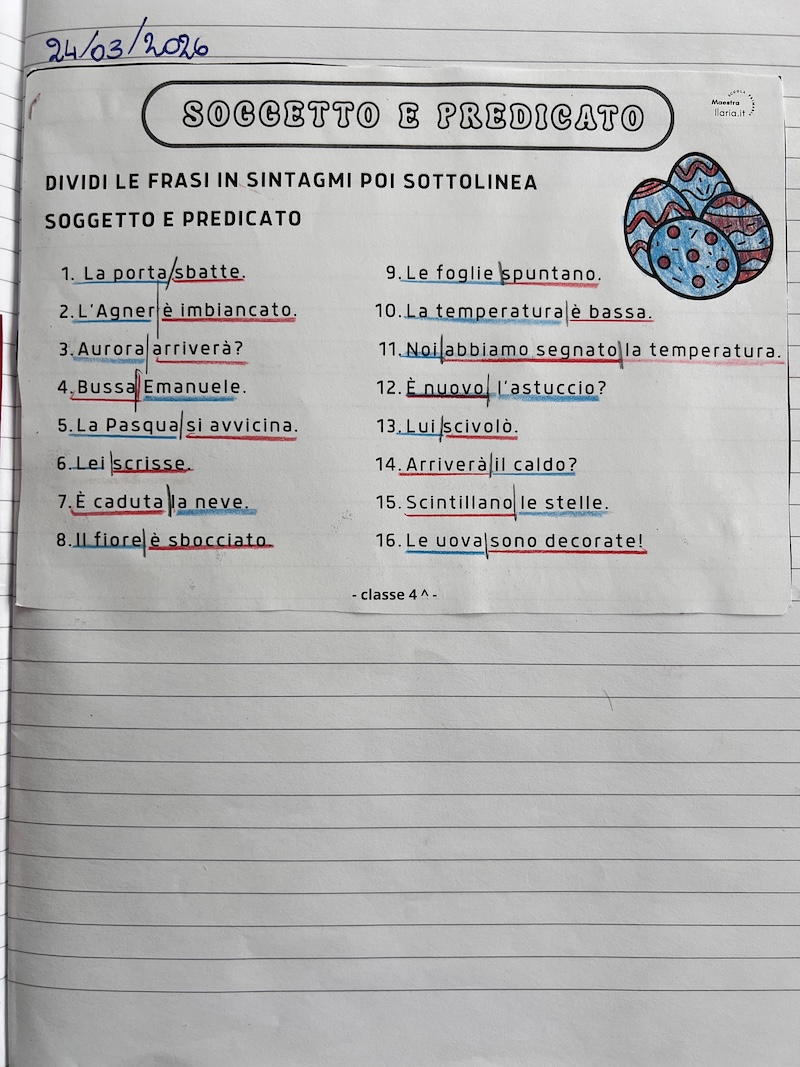 24/03/2026
SOGGETTO E PREDICATO
SCUOLA PRIMARIA
Maestra
Ilaria.it
DIVIDI LE FRASI IN SINTAGMI POI SOTTOLINEA
SOGGETTO E PREDICATO
1. La porta/sbatte.
2. L'Agner|è imbiancato.
3. Aurora|arriverà?
4. Bussa|Emanuele.
5. La Pasqua|si avvicina.
6. Lei|scrisse.
7. È caduta|la neve.
8. Il fiore|è sbocciato.
9. Le foglie|spuntano.
10. La temperatura|è bassa.
11. Noi|abbiamo segnato|la temperatura.
12. È nuovo|l'astuccio?
13. Lui|scivolò.
14. Arriverà|il caldo?
15. Scintillano|le stelle.
16. Le uova|sono decorate!
- classe 4^ -